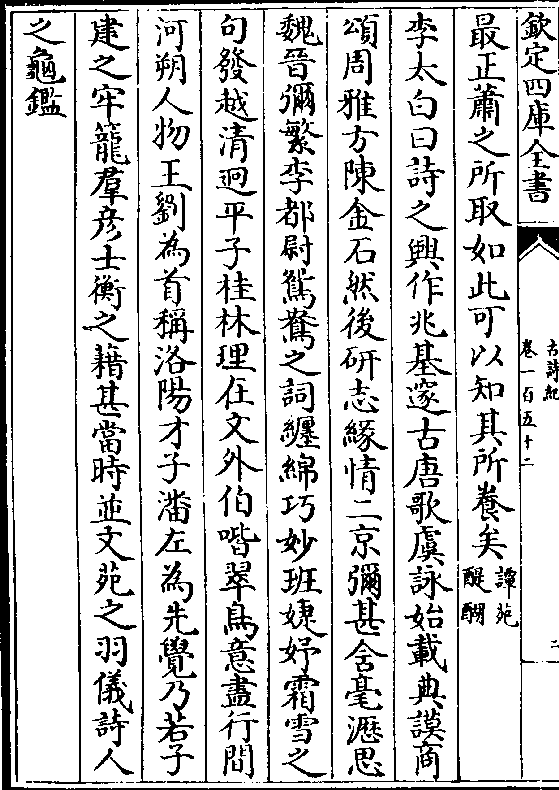 欽定四庫全書
古詩紀
卷一百五十二
二
最正蕭之所取如此可以知其所養矣譚苑
醍醐
李太白曰詩之興作兆基邃古唐歌虞詠始載典謨商
頌周雅方陳金石然後研志緣情二京彌甚含毫瀝思
魏晉彌繁李都尉鴛鴦之詞纏綿巧妙班婕妤霜雪之
句發越清迥平子桂林理在文外伯喈翠鳥意盡行間
河朔人物王劉為首稱洛陽才子潘左為先覺乃若子
建之牢籠羣彦士衡之藉甚當時並文苑之羽儀詩人
之龜鑑